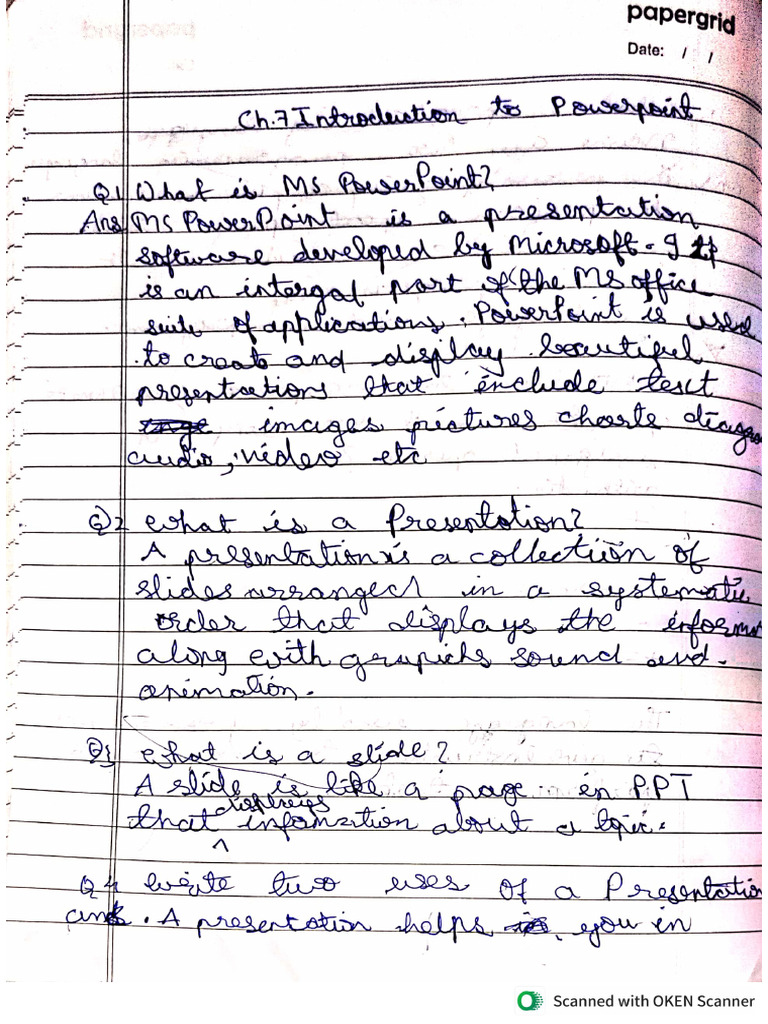 papergrid
Date: / /
Ch.7 Introduction to Powerpoint
Q1 What is MS PowerPoint?
Ans MS PowerPoint is a presentation
software developed by Microsoft. It
is an intergal part of the MS office
suite of applications. PowerPoint is used
to create and display beautiful
presentations that include text
images pictures charts diagra
audio, video etc
Q2 What is a Presentation?
A presentation is a collection of
slides arranged in a systematic
order that displays the inform
along with grapichs sound and
animation.
Q3 What is a slide?
A slide is like a page in PPT
displays
that information about a topic.
Q4 Write two uses of a Presentation
ans. A presentation helps you in
Scanned with OKEN Scanner